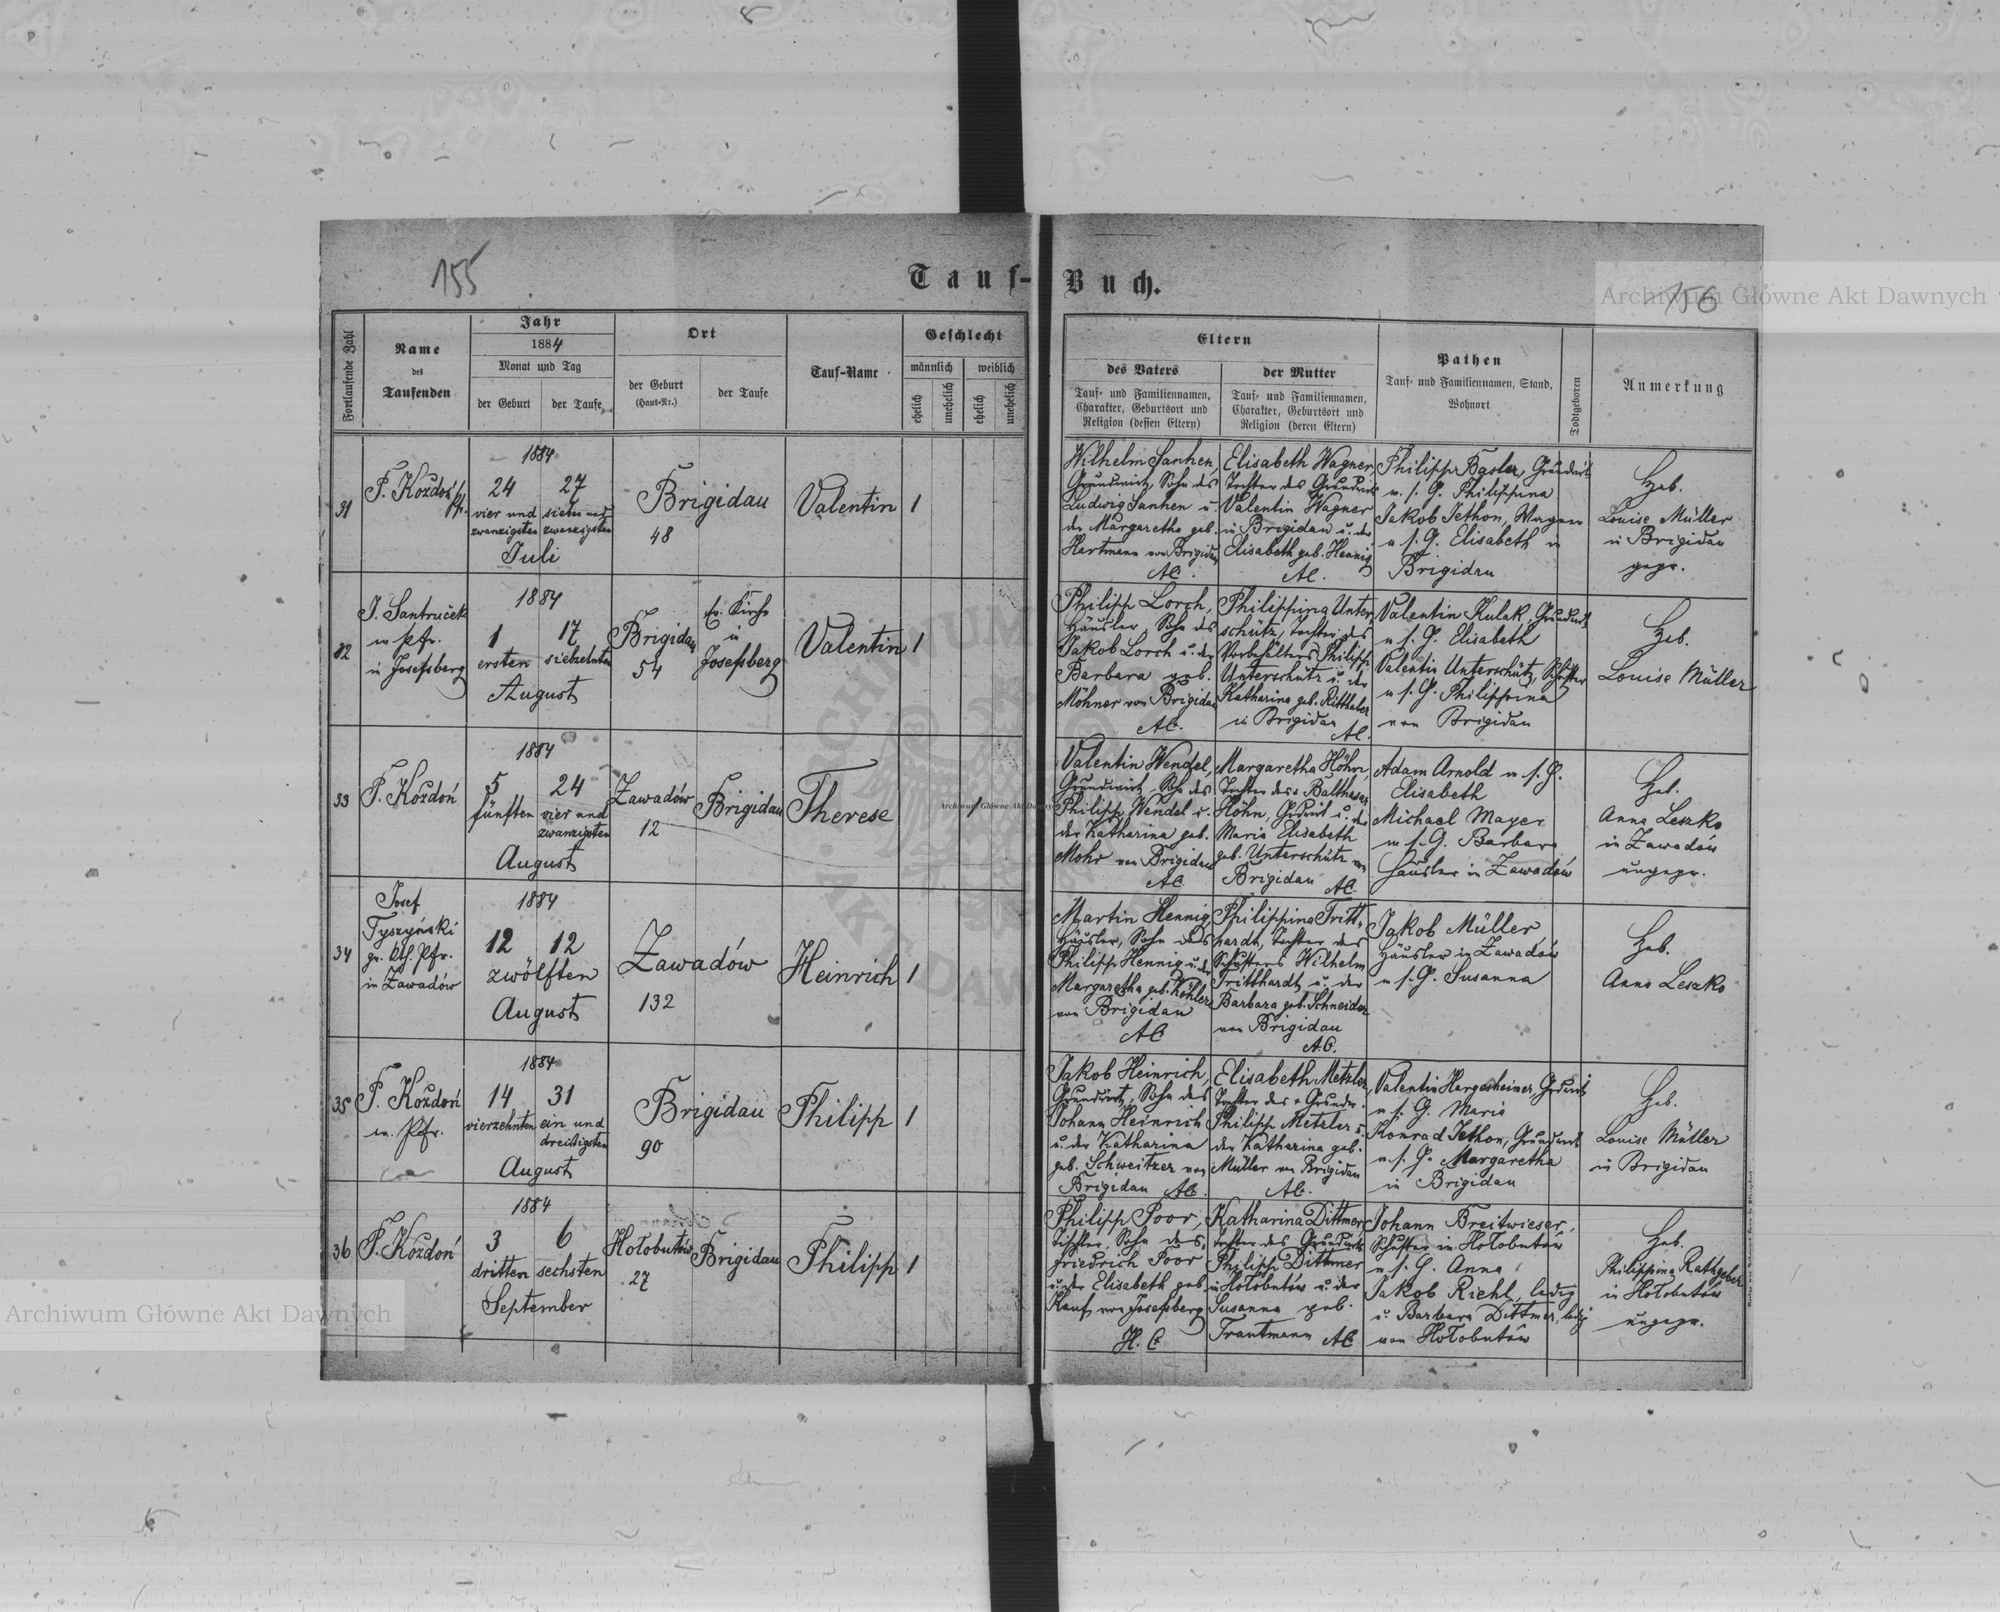 155
Tauf-Buch.
156
Archiwum Główne Akt Dawnych
Fortlaufende Zahl
Name
des
Taufenden
Jahr
1884
Monat und Tag
der Geburt
der Taufe
Ort
der Geburt
(Haus-Nr.)
der Taufe
Tauf-Name
Geschlecht
männlich
weiblich
ehelich
unehelich
ehelich
unehelich
Eltern
des Vaters
Tauf- und Familiennamen,
Charakter, Geburtsort und
Religion (dessen Eltern)
der Mutter
Tauf- und Familiennamen,
Charakter, Geburtsort und
Religion (deren Eltern)
Pathen
Tauf- und Familiennamen, Stand,
Wohnort
Todtgeboren
Anmerkung
31
F. Kozdoń
1884
24
vier und
zwanzigsten
27
sieben und
zwanzigsten
Juli
Brigidau
48
Valentin
1
Wilhelm Sanhen,
Grundwirt, Sohn des
Ludwig Sanhen u.
der Margaretha geb.
Hartmann von Brigidau
AC.
Elisabeth Wagner
Tochter des Grundwirts
Valentin Wagner
in Brigidau u. der
Elisabeth geb. Hennig
AC.
Philipp Basler, Grundwirt
u. s. G. Philippina
Jakob Jethon, Wagner
u. s. G. Elisabeth in
Brigidau
Heb.
Louise Müller
in Brigidau
gepr.
32
J. Santruček
ev Pfr.
in Josefsberg
1884
1
ersten
17
siebzehnten
August
Brigidau
54
Ev. Kirche
in
Josefsberg
Valentin
1
Philipp Lorch,
Häusler, Sohn des
Jakob Lorch u. der
Barbara geb.
Möhner von Brigidau
AC.
Philippina Unter
schütz, Tochter des
Vorbehälters Philipp
Unterschütz u. der
Katharina geb. Ritthaler
in Brigidau
AC.
Valentin Kulak, Grundwirt
u s. G. Elisabeth
Valentin Unterschütz, Schuster
u s. G. Philippina
von Brigidau
Heb.
Louise Müller
33
F. Kozdoń
1884
5
fünften
24
vier und
zwanzigsten
August
Zawadów
12
Brigidau
Therese
1
Valentin Wendel,
Grundwirt, Sohn des
Philipp Wendel u.
der Katharina geb.
Mohr von Brigidau
AC
Margaretha Höhn,
Tochter des + Balthasar
Höhn, Grdwirt u. der
Maria Elisabeth
geb. Unterschütz von
Brigidau AC.
Adam Arnold u s. G.
Elisabeth
Michael Mayer
u s. G. Barbara
Häusler in Zawadów
Heb.
Anna Leszko
in Zawadów
ungepr.
34
Josef
Tyszyński
gr. kth. Pfr.
in Zawadów
1884
12
12
zwölften
August
Zawadów
132
Heinrich
1
Martin Hennig
Häusler, Sohn des
Philipp Hennig u. der
Margaretha geb. Köhler
von Brigidau
AC
Philippina Tritt-
hardt, Tochter des
Schusters Wilhelm
Tritthardt u. der
Barbara geb. Schneider
von Brigidau
A.C.
Jakob Müller
Häusler in Zawadów
u s. G. Susanna
Heb.
Anna Leszko
35
F. Kozdoń
ev. Pfr.
1884
14
vierzehnten
31
ein und
dreißigsten
August
Brigidau
90
Philipp
1
Jakob Heinrich,
Grundwirt, Sohn des
Johann Heinrich
u. der Katharina
geb. Schweitzer von
Brigidau AC.
Elisabeth Metzler,
Tochter des + Grundw.
Philipp Metzler u.
der Katharina geb.
Müller von Brigidau
AC.
Valentin Hargesheimer, Grdwirt
u s. G. Maria
Konrad Jethon, Grundwirt
u s. G. Margaretha
in Brigidau
Heb.
Louise Müller
in Brigidau
36
F. Kozdoń
1884
3
dritten
6
sechsten
September
Hołobutów
27
Brigidau
Philipp
1
Philipp Poor,
Tischler, Sohn des
Friedrich Poor
u. der Elisabeth geb.
Rauf von Josefsberg
H. C
Katharina Dittmer
Tochter des Grundwirts
Philipp Dittmer
in Hołobutów u. der
Susanna geb.
Trautmann AC
Johann Breitwieser,
Schuster in Hołobutów
u s. G. Anna
Jakob Riehl, ledig
u. Barbara Dittmer, ledig
von Hołobutów
Heb.
Philippina Rathgeber
in Hołobutów
ungepr.
Archiwum Główne Akt Dawnych
Archiwum Główne Akt Dawnych